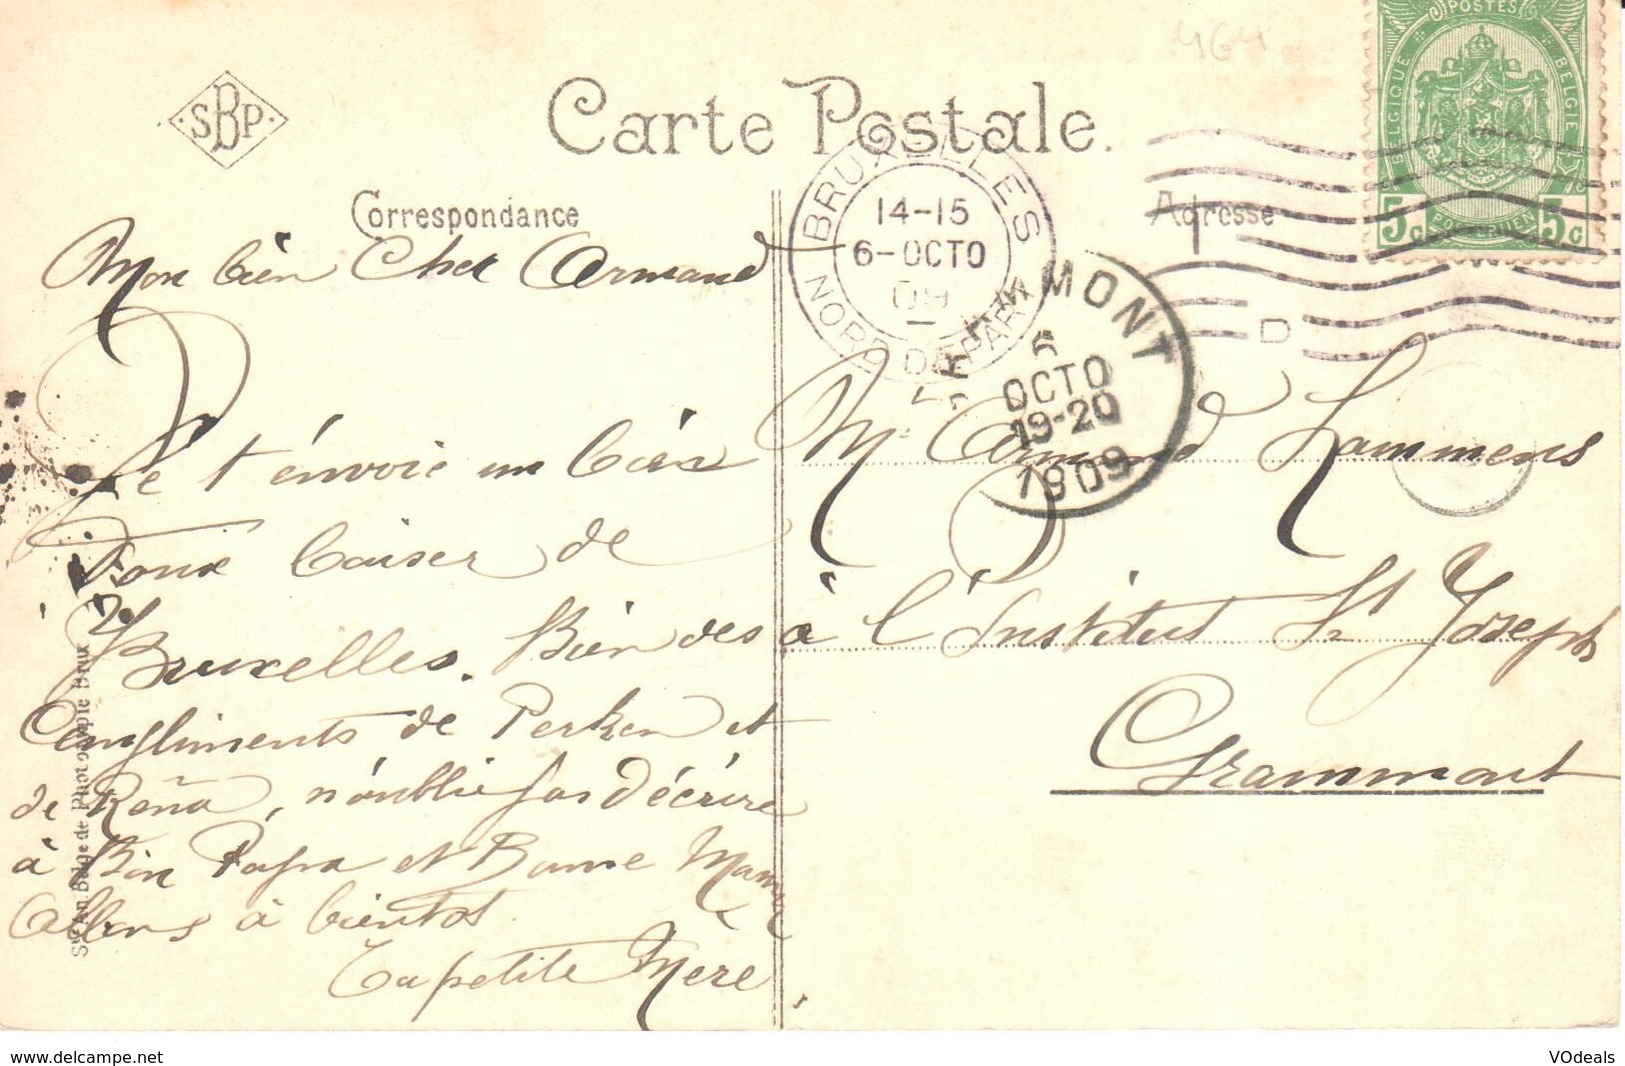 464
Carte Postale.
SBP
Correspondance
Adresse
POSTES
BELGIQUE
BELGIE
5c
5c
BRUXELLES
14-15
6-OCTO
09
NORD DEPART
MONT
6
OCTO
19-20
1909
D
Mon bien Cher Armand
Je t'énvoie un bien
doux baiser de
Bruxelles. Bien des
Compliments de Perken et
de Reña, n'oublie pas d'écrire
à Bon Papa et Bonne Maman
Allons à bientot
Ta petite Mère
Mr Armand Lammens
à l'Institut St Joseph
Grammont
Sté An. Belge de Phototypie Brux
www.delcampe.net
VOdeals